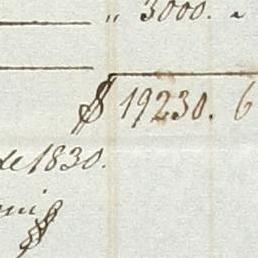 " 3000. "
$ 19230. 6
de 1830.